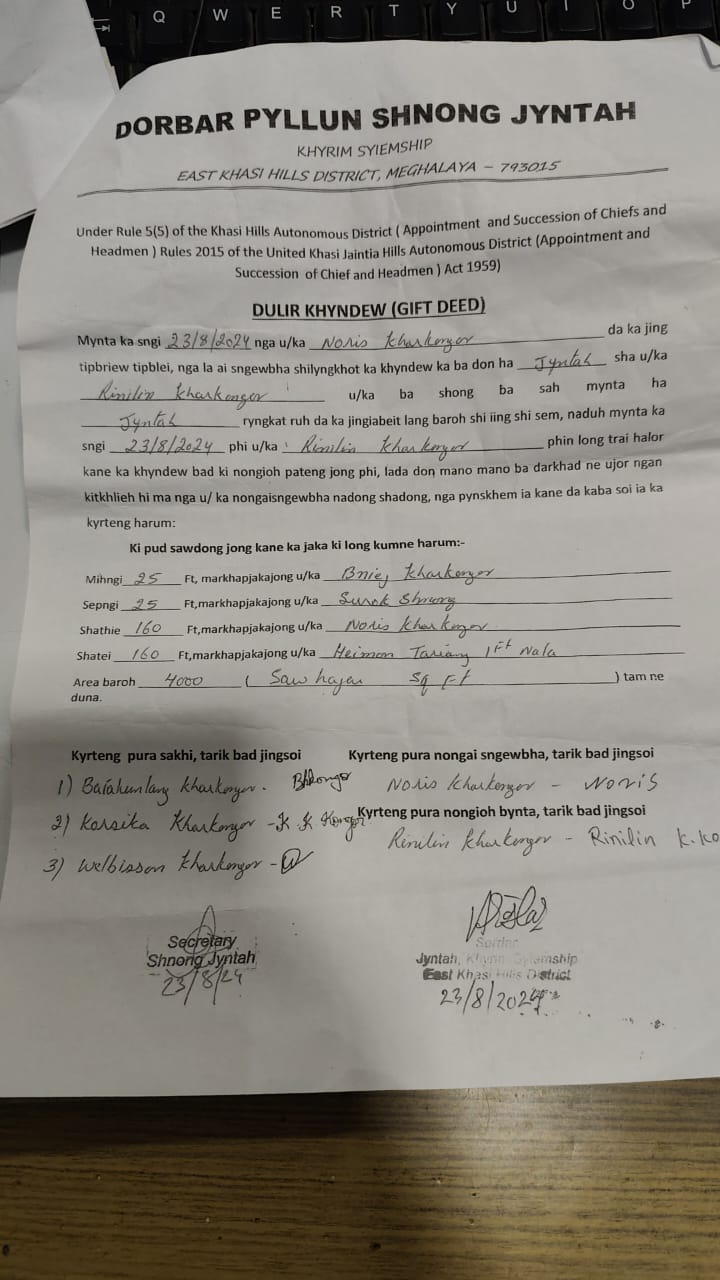 Q W E R T Y U I O P
DORBAR PYLLUN SHNONG JYNTAH
KHYRIM SYIEMSHIP
EAST KHASI HILLS DISTRICT, MEGHALAYA – 793015
Under Rule 5(5) of the Khasi Hills Autonomous District ( Appointment and Succession of Chiefs and
Headmen ) Rules 2015 of the United Khasi Jaintia Hills Autonomous District (Appointment and
Succession of Chief and Headmen ) Act 1959)
DULIR KHYNDEW (GIFT DEED)
Mynta ka sngi 23/8/2024 nga u/ka Noris Kharkongor da ka jing
tipbriew tipblei, nga la ai sngewbha shilyngkhot ka khyndew ka ba don ha Jyntah sha u/ka
Rinilin Kharkongor u/ka ba shong ba sah mynta ha
Jyntah ryngkat ruh da ka jingiabeit lang baroh shi iing shi sem, naduh mynta ka
sngi 23/8/2024 phi u/ka Rinilin Kharkongor phin long trai halor
kane ka khyndew bad ki nongioh pateng jong phi, lada don mano mano ba darkhad ne ujor ngan
kitkhlieh hi ma nga u/ ka nongaisngewbha nadong shadong, nga pynskhem ia kane da kaba soi ia ka
kyrteng harum:
Ki pud sawdong jong kane ka jaka ki long kumne harum:-
Mihngi 25 Ft, markhapjakajong u/ka Kharkongor
Sepngi 25 Ft,markhapjakajong u/ka Surok Shnong
Shathie 160 Ft,markhapjakajong u/ka Noris Kharkongor
Shatei 160 Ft,markhapjakajong u/ka Heimon Tariang 1Ft Nala
Area baroh 4000 ( Saw hajar Sq Ft ) tam ne
duna.
Kyrteng pura sakhi, tarik bad jingsoi Kyrteng pura nongai sngewbha, tarik bad jingsoi
1) Baiahunlang Kharkongor. Noris Kharkongor – Noris
Kyrteng pura nongioh bynta, tarik bad jingsoi
2) Korsika Kharkongor - K. K Kongor Rinilin Kharkongor – Rinilin K.Ko
3) Welbisson Kharkongor -
Secretary
Shnong Jyntah
23/8/24
Jyntah, Khyrim Syiemship
East Khasi Hills District
23/8/2024